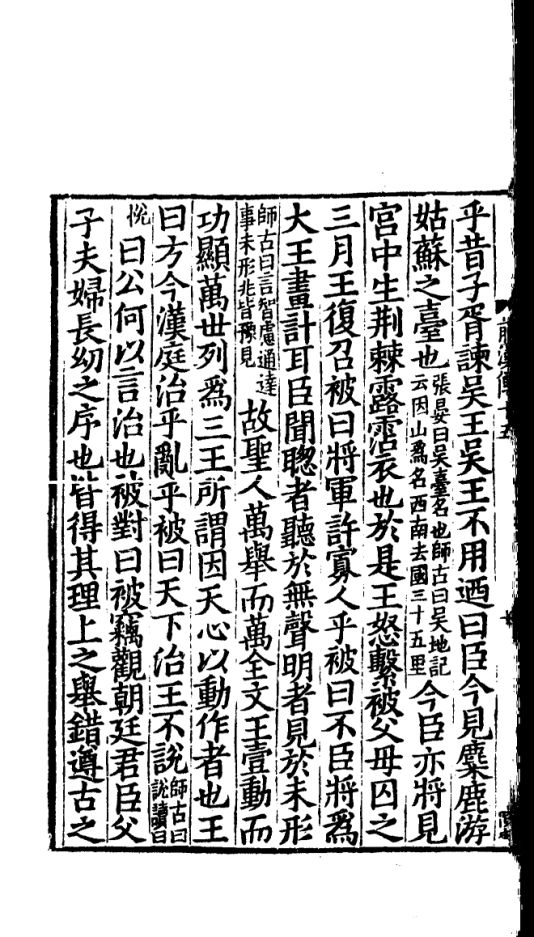 乎昔子胥諫吴王吴王不用迺曰臣今見麋鹿游
姑蘇之臺也張晏曰吴臺名也師古曰吴地記云因山爲名西南去國三十五里今臣亦將見
宫中生荆棘露霑衣也於是王怒繫被父母囚之
三月王復召被曰將軍許寡人乎被曰不臣將爲
大王畫計耳臣聞聦者聽於無聲明者見於未形
師古曰言智慮通達事未形兆皆豫見故聖人萬舉而萬全文王壹動而
功顯萬世列爲三王所謂因天心以動作者也王
曰方今漢庭治乎亂乎被曰天下治王不說師古曰說讀曰
悅曰公何以言治也被對曰被竊觀朝廷君臣父
子夫婦長幼之序也皆得其理上之舉錯遵古之